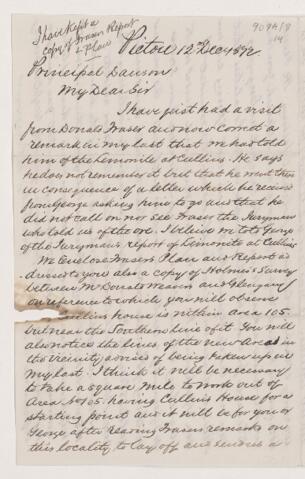 I have kept a
copy of Frasers Report
& Plan
909A/8
14
Pictou 12th Dec 1872
Principal Dawson
My Dear Sir
I have just had a visit
from Donald Fraser and now correct a
remark in my last that we had told
him of the Lemonite at Cullins. He says
he does not remember it but that he went then
in consequence of a letter which he received
from George asking him to go and that he
did not call on nor see Fraser the Ferryman
who told us of the ore. I believe we told George
of the Ferryman's report of Limonite at Cullins
We Enclose Frasers Plan and Report ad-
dressed to you also a copy of Holmes's Survey
between McDonalds Weaver and Glengarry
on reference to which you will observe
Cullins house is within area 105.
but near the Southern line of it. You will
also notice the lines of the new Areas in
the vicinity advised of being taken up in
my last. I think it will be necessary
to take a square mile to work out of
Area No 105. having Cullin's House for a
starting point and it will be for you or
George after reading Frasers remarks on
this locality, to lay off and send us a